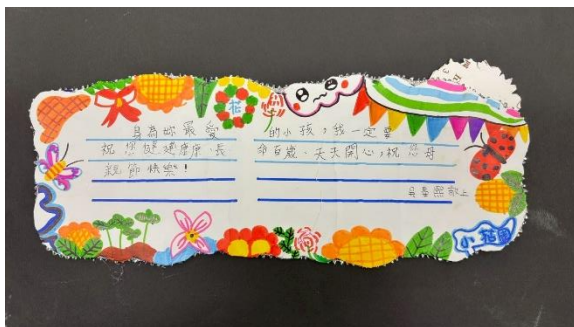 花
身為妳最愛的小孩，我一定要
祝您健健康康、長命百歲、天天開心，祝您母
親節快樂！
敬上
小花園